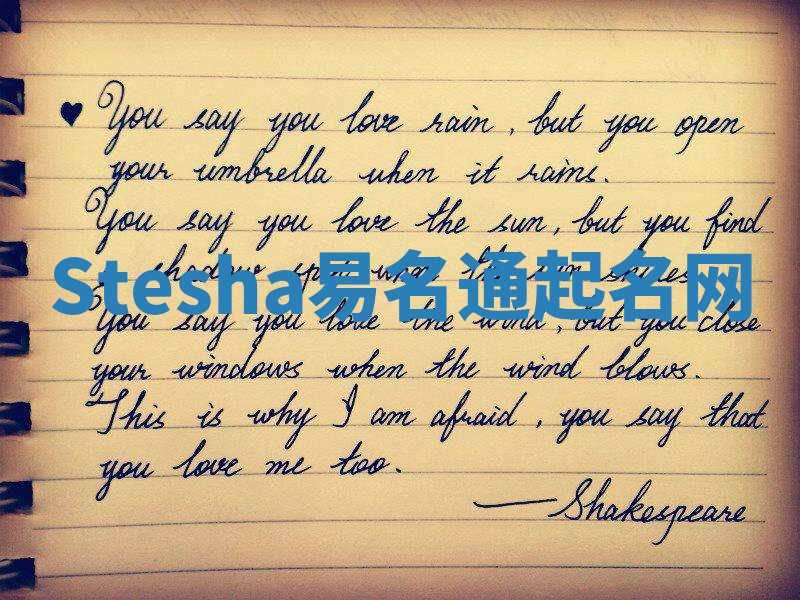 ♥ You say you love rain, but you open
your umbrella when it rains.
You say you love the sun, but you find
a shadow spot when the sun shines.
Stesha易名通起名网
You say you love the wind, but you close
your windows when the wind blows.
This is why I am afraid, you say that
you love me too.
— Shakespeare